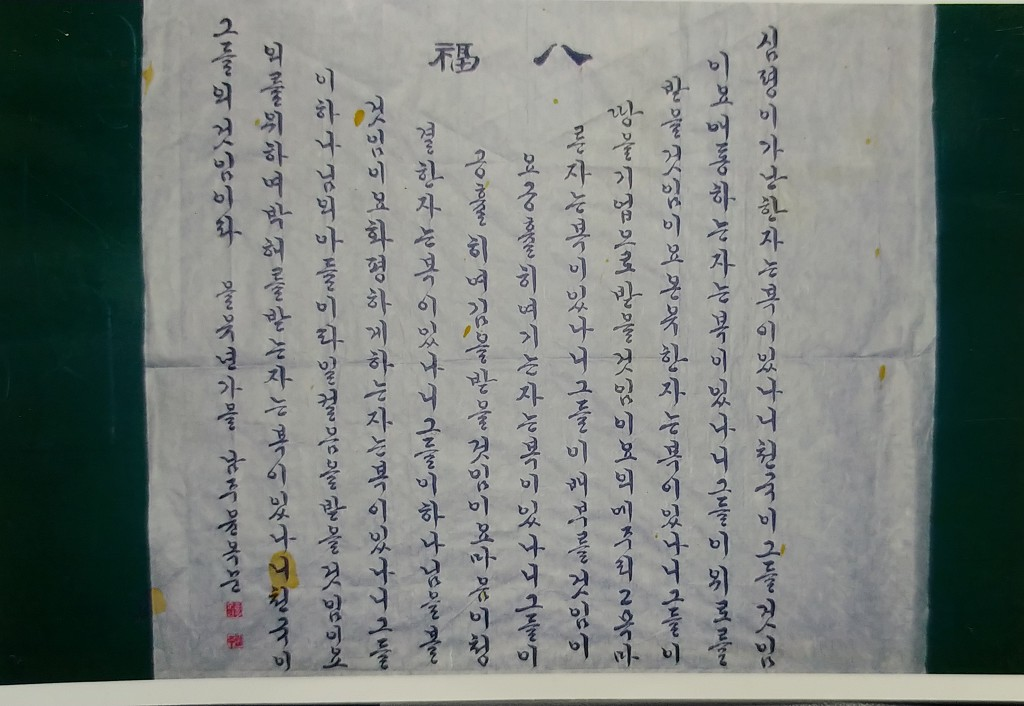 八福
심령이가난한자는복이있나니천국이그들것임
이요애통하는자는복이있나니그들이위로를
받을것임이요온유한자는복이있나니그들이
땅을기업으로받을것임이요의에주리고목마
른자는복이있나니그들이배부를것임이
요긍휼히여기는자는복이있나니그들이
긍휼히여김을받을것임이요마음이청
결한자는복이있나니그들이하나님을볼
것임이요화평하게하는자는복이있나니그들
이하나님의아들이라일컬음을받을것임이요
의를위하여박해를받는자는복이있나니천국이
그들의것임이라 을유년가을